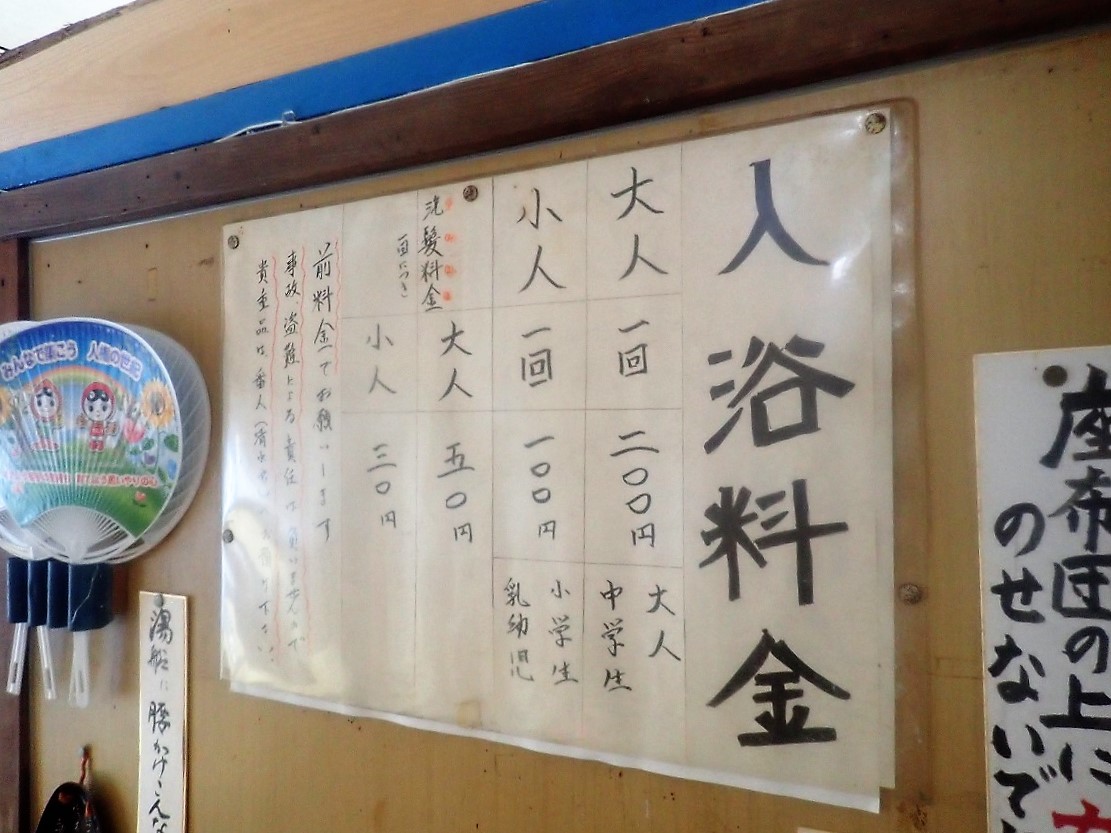 入浴料金
大人 一回 二〇〇円 大人
中学生
小人 一回 一〇〇円 小学生
乳幼児
洗髪料金 大人 五〇円
一回につき 小人 三〇円
前料金でお願いします
事故、盗難による責任は負いませんので
貴重品は番人
座布団の上に
のせないで
湯船に腰かけこんな
みんなで築こう 人権の世紀